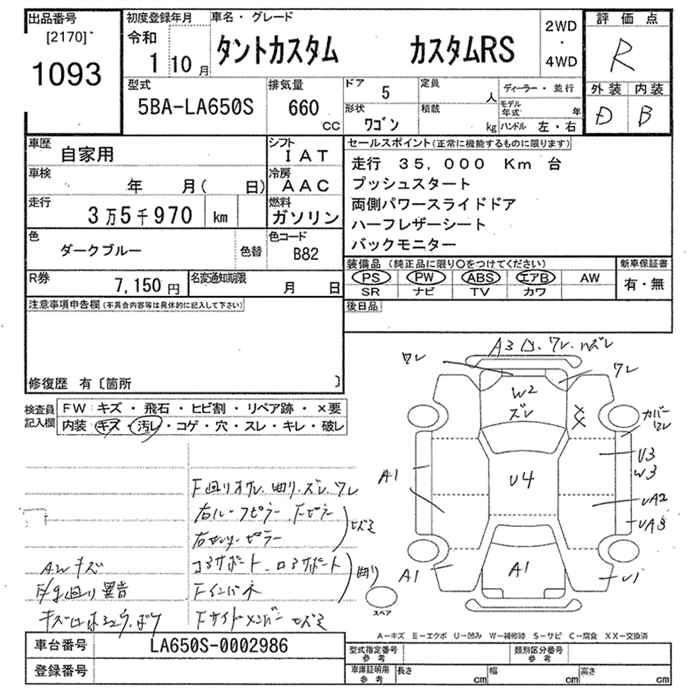 出品番号
[2170]
1093
初度登録年月
令和
1 10月
車名・グレード
タントカスタム カスタムRS
2WD
・
4WD
評価点
R
外装 内装
D B
型式
5BA-LA650S
排気量
660
CC
ドア 5
形状 ワゴン
定員 人
積載 kg
ディーラー・並行
モデル年式 年
ハンドル 左・右
車歴 自家用
シフト IAT
車検 年 月( 日)
冷房 AAC
走行 3万5千970 km
燃料 ガソリン
色 ダークブルー
色替
色コード B82
R券 7,150円
名変通知期限 月 日
セールスポイント(正常に機能するものに限ります)
走行 35,000 Km 台
プッシュスタート
両側パワースライドドア
ハーフレザーシート
バックモニター
装備品(純正品に限り〇をつけてください)
PS PW ABS エアB AW
SR ナビ TV カワ
新車保証書
有・無
後日品
注意事項申告欄(不具合内容等は具体的に記入して下さい)
修復歴 有〔箇所 〕
検査員記入欄
FW:キズ・飛石・ヒビ割・リペア跡・×要
内装:キズ・汚レ・コゲ・穴・スレ・キレ・破レ
A3 凸.ワレ.ハズレ
ワレ
ワレ
W2
ズレ
XX
カバー
ワレ
U3
W3
A1
U4
UA2
UA3
A1
A1
U1
スペア
F廻りオサレ.曲り.ズレ.ワレ
右ルーフピラー Fピラー
右センターピラー
ヒズミ
コアサポート.ロアサポート
Fインパネ
曲り
Fサイドメンバー ヒズミ
AWキズ
A-キズ E-エクボ U-凹み W-補修跡 S-サビ C-腐食 XX-交換済
車台番号 LA650S-0002986
登録番号
型式指定番号
参考
類別区分番号
参考
車庫証明用
参考
長さ cm
幅 cm
高さ cm